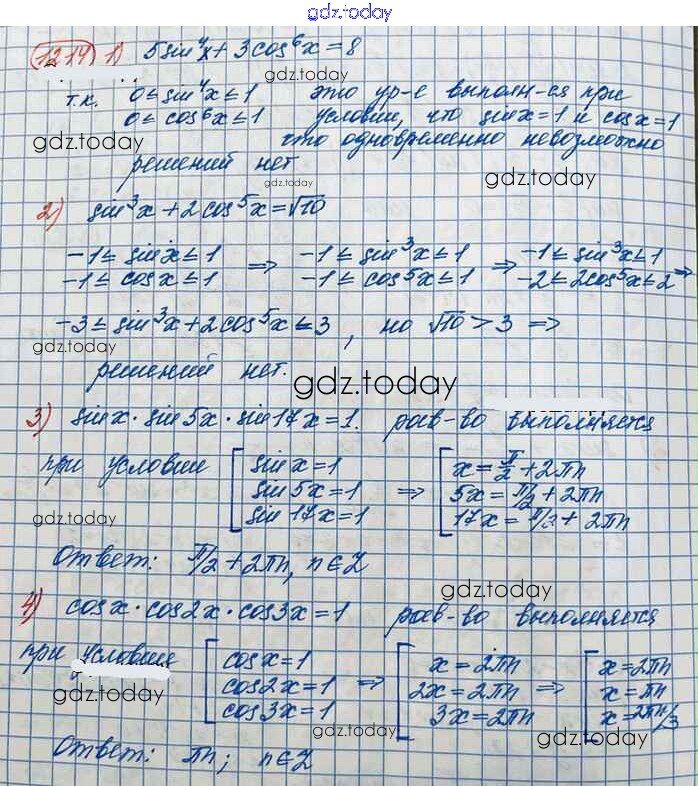 gdz.today
1214) 1) 5sin⁴x + 3cos⁶x = 8
gdz.today
т.к. 0 ≤ sin⁴x ≤ 1 это ур-е выполн-ся при
0 ≤ cos⁶x ≤ 1 условии, что sinx = 1 и cosx = 1
gdz.today
что одновременно невозможно
решений нет
gdz.today
gdz.today
2) sin³x + 2cos⁵x = √10
-1 ≤ sinx ≤ 1 ⇒ -1 ≤ sin³x ≤ 1 ⇒ -1 ≤ sin³x ≤ 1
-1 ≤ cosx ≤ 1 -1 ≤ cos⁵x ≤ 1 -2 ≤ 2cos⁵x ≤ 2 ⇒
-3 ≤ sin³x + 2cos⁵x ≤ 3, но √10 > 3 ⇒
gdz.today
решений нет.
gdz.today
3) sinx · sin5x · sin17x = 1. рав-во выполняется
при условии [ sinx = 1 ⇒ [ x = π/2 + 2πn
sin5x = 1 5x = π/2 + 2πn
sin17x = 1 17x = π/2 + 2πn
gdz.today
Ответ: π/2 + 2πn, n ∈ Z
gdz.today
4) cosx · cos2x · cos3x = 1 рав-во выполняется
при условии [ cosx = 1 ⇒ [ x = 2πn ⇒ [ x = 2πn
cos2x = 1 2x = 2πn x = πn
cos3x = 1 3x = 2πn x = 2πn/3
gdz.today
gdz.today
gdz.today
Ответ: πn; n ∈ Z